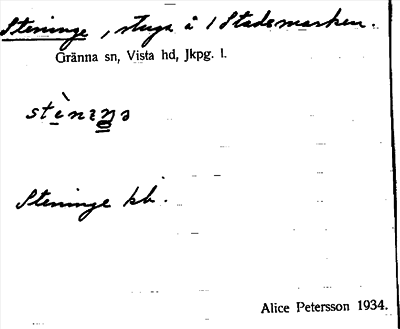 Steninge, stuga å 1 Stadsmarken.
Gränna sn, Vista hd, Jkpg. l.
stènıŋə
Steninge kb.
Alice Petersson 1934.